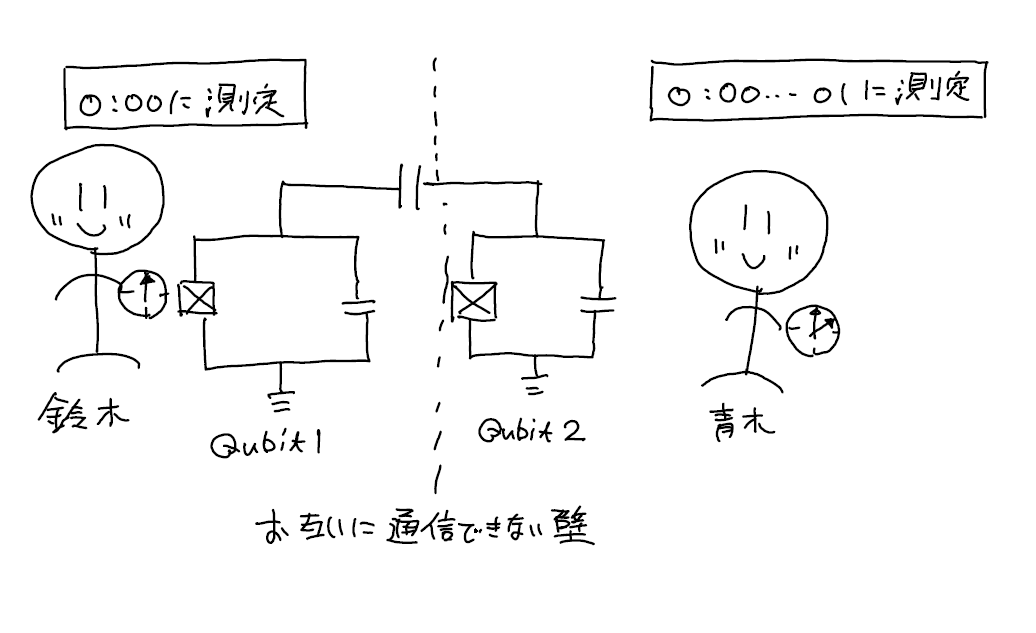 0:00に測定
0:00…01に測定
鈴木
Qubit1
Qubit2
青木
お互いに通信できない壁